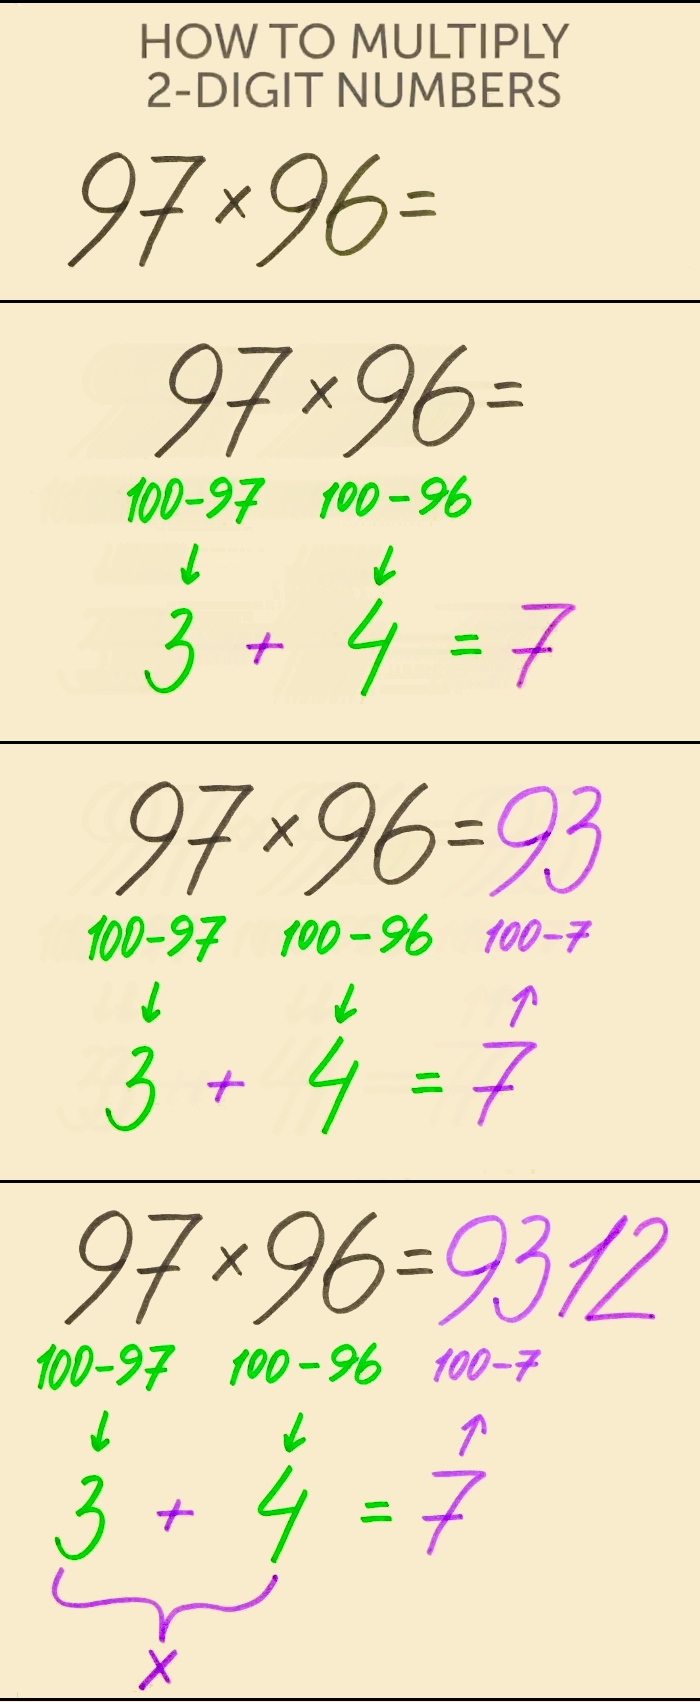 HOW TO MULTIPLY
2-DIGIT NUMBERS
97×96=
97×96=
100-97 100-96
↓ ↓
3 + 4 = 7
97×96=93
100-97 100-96 100-7
↓ ↓ ↑
3 + 4 = 7
97×96=9312
100-97 100-96 100-7
↓ ↓ ↑
3 + 4 = 7
×